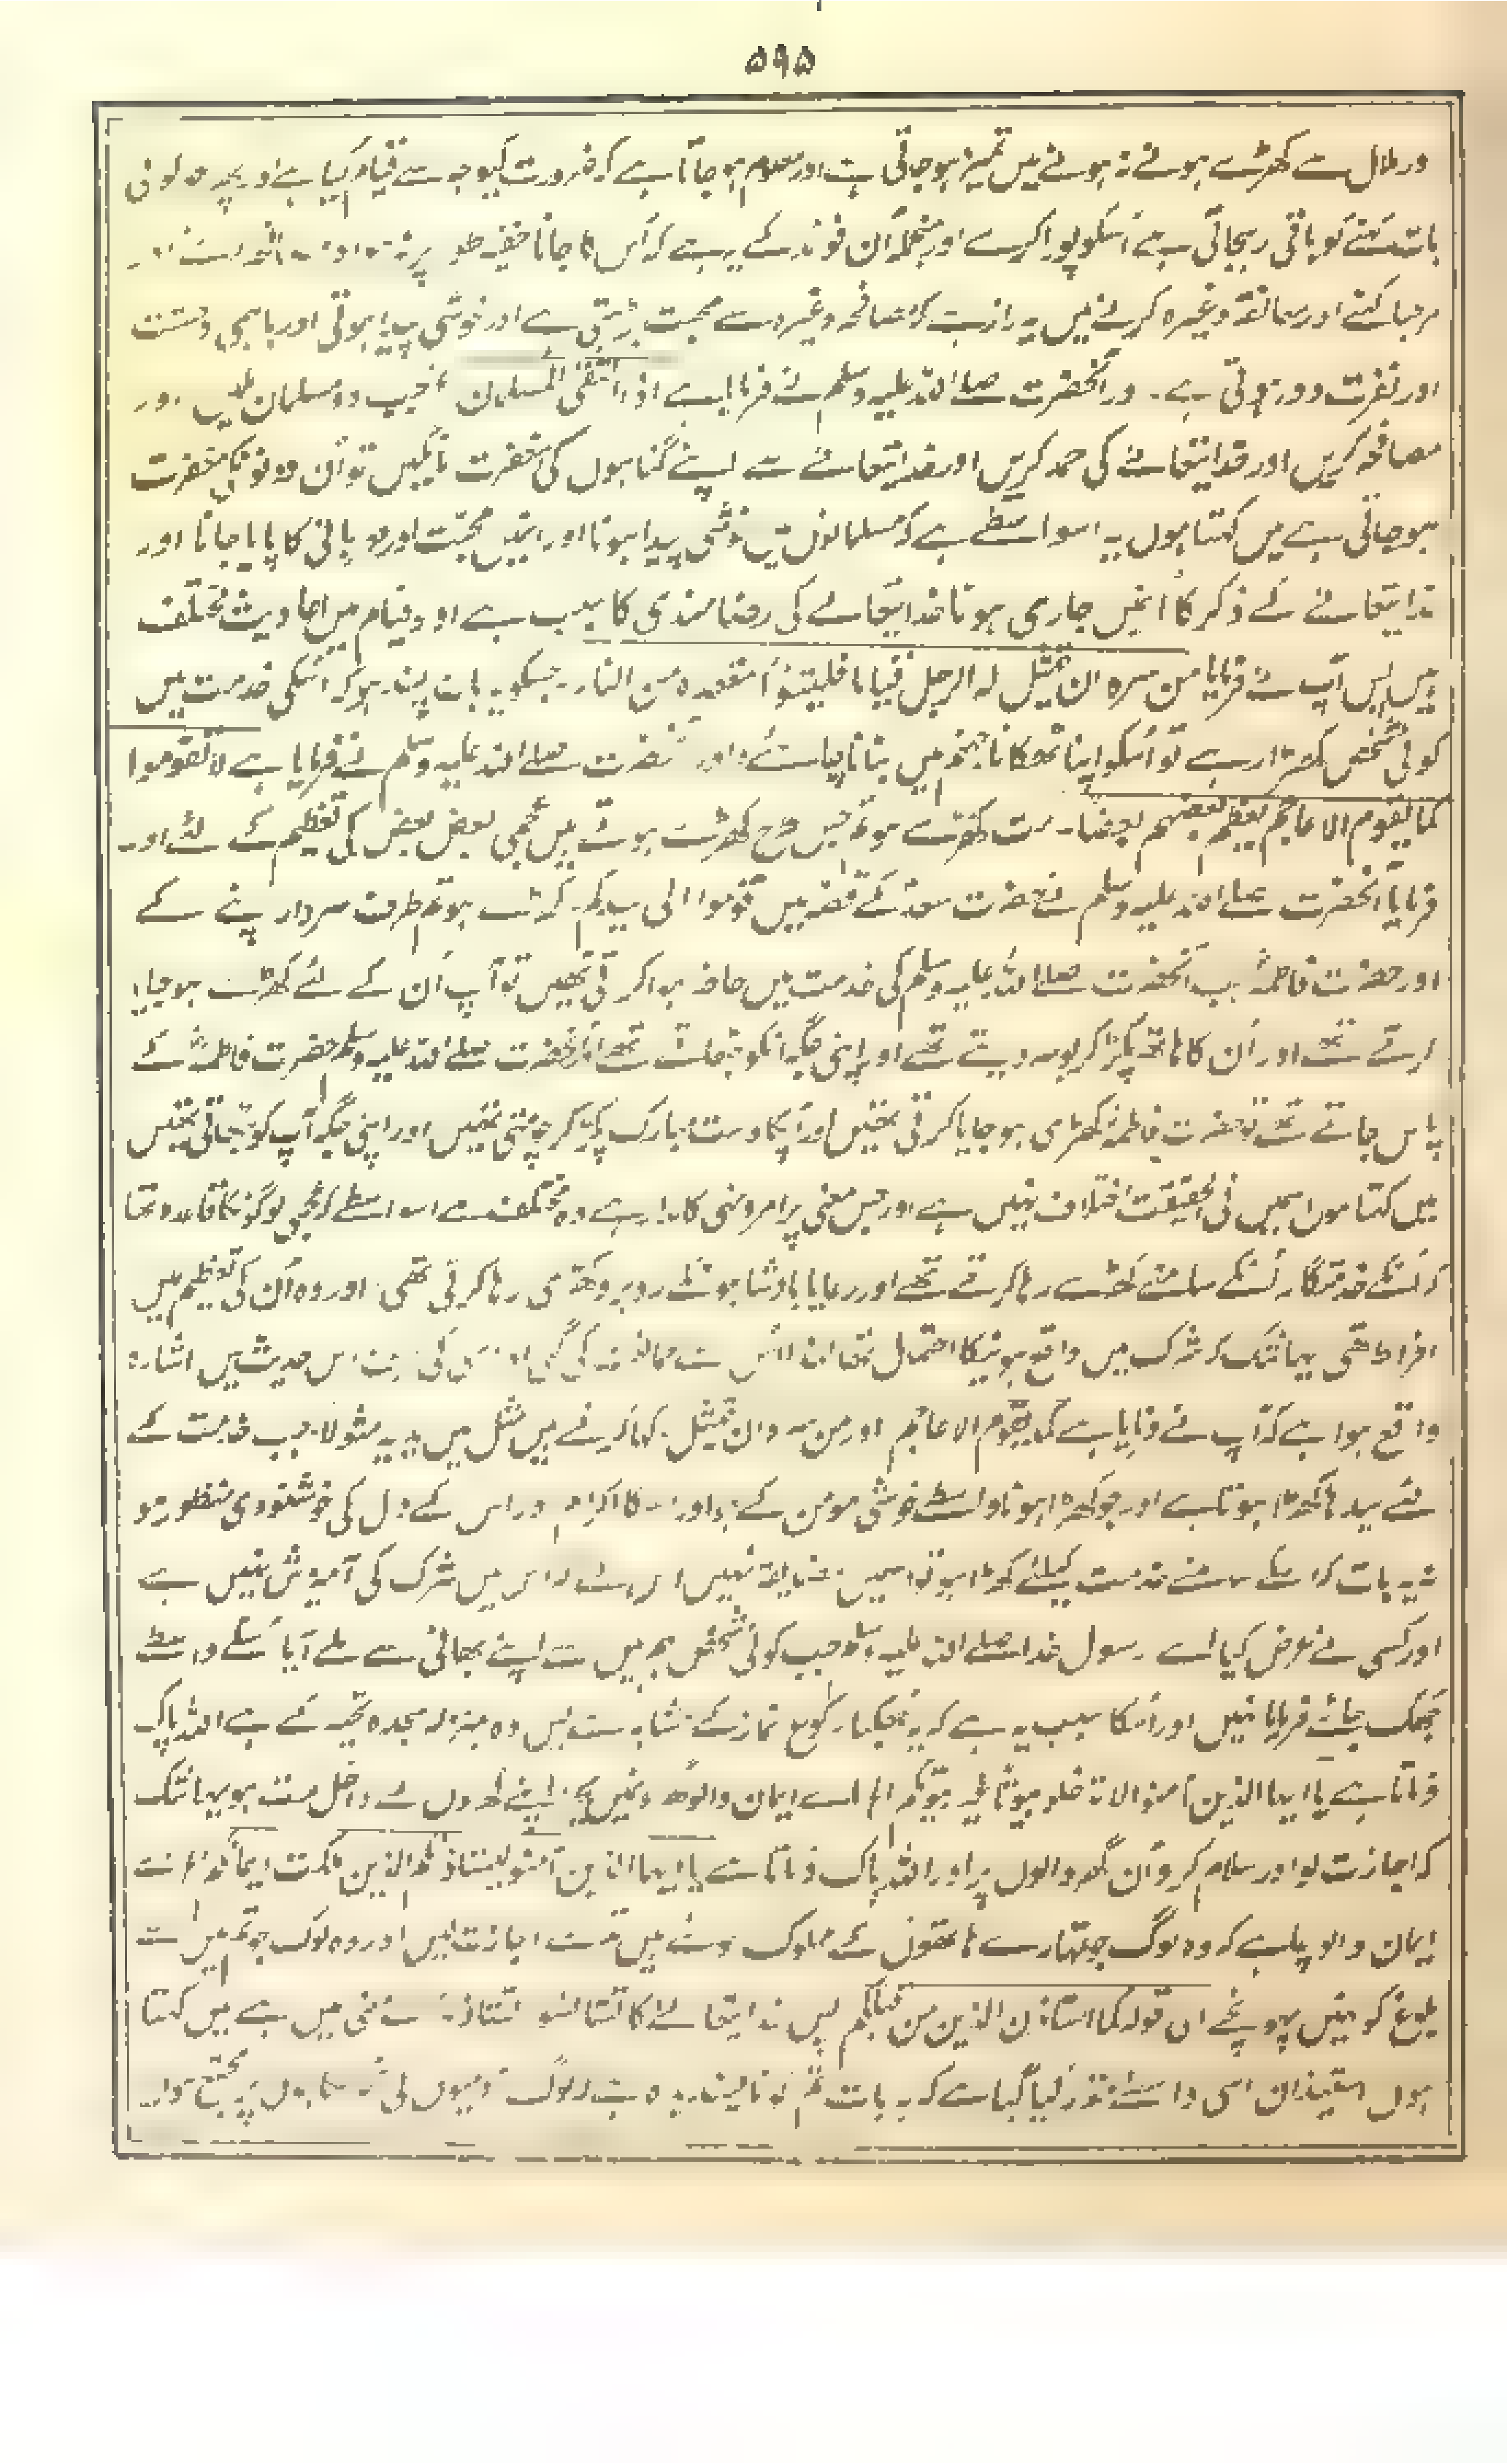 ۵۹۵
ور ملال سے کھڑے ہونے نہ ہونے میں تمیز ہو جاتی ہے اور معلوم ہو جاتا ہے کہ ضرورت کیوجہ سے قیام کیا ہے اور
بات کہنے کو باقی رہجاتی ہے اسکو پورا کرے اور منجملہ ان فوائد کے یہ ہے کہ اُس کا جانا خفیہ طور پر نہ ہو اور
مرحبا کہنے اور معانقہ وغیرہ کرنے میں یہ راز ہے کہ مصافحہ وغیرہ سے محبت بڑہتی ہے اور خوشی پیدا ہوتی اور باہمی وحشت
اور نفرت دور ہوتی ہے۔ ور آنحضرت صلے اللہ علیہ وسلم نے فرمایا ہے اذا التقی المسلمان الخ جب دو مسلمان ملیں اور
مصافحہ کریں اور خدا یتعالےٰ کی حمد کریں اور خدا یتعالےٰ سے اپنے گناہوں کی مغفرت مانگیں تو اُن دونونکی مغفرت
ہو جاتی ہے میں کہتا ہوں یہ اسواسطے ہے کہ مسلمانوں میں خوشی پیدا ہونا اور انمیں محبت اور مہربانی کا پایا جانا اور
خدا یتعالےٰ کے ذکر کا اُنمیں جاری ہونا خدا یتعالےٰ کی رضا مندی کا سبب ہے اور قیام میں احادیث مختلف
ہیں پس آپ نے فرمایا من سرہ ان یتمثل لہ الرجل قیاما فلیتبوأ مقعدہ من النار۔ جسکو یہ بات پسند ہو کہ اُسکی خدمت میں
کوئی شخص کھڑا رہے تو اُسکو اپنا ٹھکانا جہنم میں بنانا چاہئے اور آنحضرت صلے اللہ علیہ وسلم نے فرمایا ہے لا تقوموا
کما یقوم الاعاجم یعظم بعضہم بعضا۔ مت کھڑے ہو تم جس طرح کھڑے ہوتے ہیں عجمی بعض بعض کی تعظیم کے لئے اور
فرمایا آنحضرت صلے اللہ علیہ وسلم نے حضرت سعدؓ کے قصہ میں قوموا الی سیدکم۔ کھڑے ہو تم طرف سردار اپنے کے
اور حضرت فاطمہؓ جب آنحضرت صلے اللہ علیہ وسلم کی خدمت میں حاضر ہوا کرتی تھیں تو آپ اُن کے لئے کھڑے ہو جایا
کرتے تھے اور اُن کا ہاتھ پکڑ کر بوسہ دیتے تھے اور اپنی جگہ انکو بٹھاتے تھے اور آنحضرت صلے اللہ علیہ وسلم حضرت فاطمہؓ کے
پاس جاتے تھے تو حضرت فاطمہؓ کھڑی ہو جایا کرتی تھیں اور آپکا دست مبارک پکڑ کر چومتی تھیں اور اپنی جگہ آپ کو بٹھاتی تھیں
میں کہتا ہوں اسمیں فی الحقیقت اختلاف نہیں ہے اور جس معنی پر امر و نہی کا مدار ہے وہ مختلف ہے اسواسطے کہ عجمی لوگونکا قاعدہ تھا
کہ اُنکے خدمتگار اُنکے سامنے کھڑے رہا کرتے تھے اور رعایا بادشاہونکے روبرو کھڑی رہا کرتی تھی۔ اور وہ اُن کی تعظیم میں
افراط تھی یہانتک کہ شرک میں واقع ہونیکا احتمال تھا ان لئے اس سے ممانعت کی گئی اور اس حدیث میں اشارہ
واقع ہوا ہے کہ آپ نے فرمایا ہے کما یقوم الاعاجم اور من سرہ ان یتمثل۔ کہا کرتے ہیں مثل بین یدیہ مثولا۔ جب خدمت کے
لئے سیدھا کھڑا ہوتا ہے اور جو کھڑا ہونا واسطے خوشی مومن کے ہو اور اسکا اکرام اور اس کے دل کی خوشنودی منظور ہو
نہ یہ بات کہ اسکے سامنے خدمت کیلئے کھڑا ہو تو اسمیں مضایقہ نہیں اسلئے کہ اس میں شرک کی آمیزش نہیں ہے
اور کسی نے عرض کیا اے رسول خدا صلے اللہ علیہ وسلم جب کوئی شخص ہم میں سے اپنے بھائی سے ملے آیا اُسکے واسطے
جھک جائے فرمایا نہیں اور اسکا سبب یہ ہے کہ یہ جھکنا رکوع نماز کے مشابہ ہے پس وہ بمنزلہ سجدہ تحیہ کے ہے اللہ پاک
فرماتا ہے یا ایہا الذین آمنوا لا تدخلوا بیوتا غیر بیوتکم الخ اے ایمان والو گھروں میں بجز اپنے گھروں کے داخل مت ہو یہانتک
کہ اجازت لو اور سلام کرو اُن گھر والوں پر اور اللہ پاک فرماتا ہے یا ایہا الذین آمنوا لیستاذنکم الذین ملکت ایمانکم اے
ایمان والو چاہیے کہ وہ لوگ جو تمہارے ہاتھوں کے مملوک ہوئے ہیں تم سے اجازت لیں اور وہ لوگ جو تم میں سے
بلوغ کو نہیں پہونچے اس قولہ کما استاذن الذین من قبلکم پس خدا یتعالےٰ کا تستانسوا تستاذنوا کے معنی میں ہے میں کہتا
ہوں استیذان اسی واسطے مقرر کیا گیا ہے کہ یہ بات